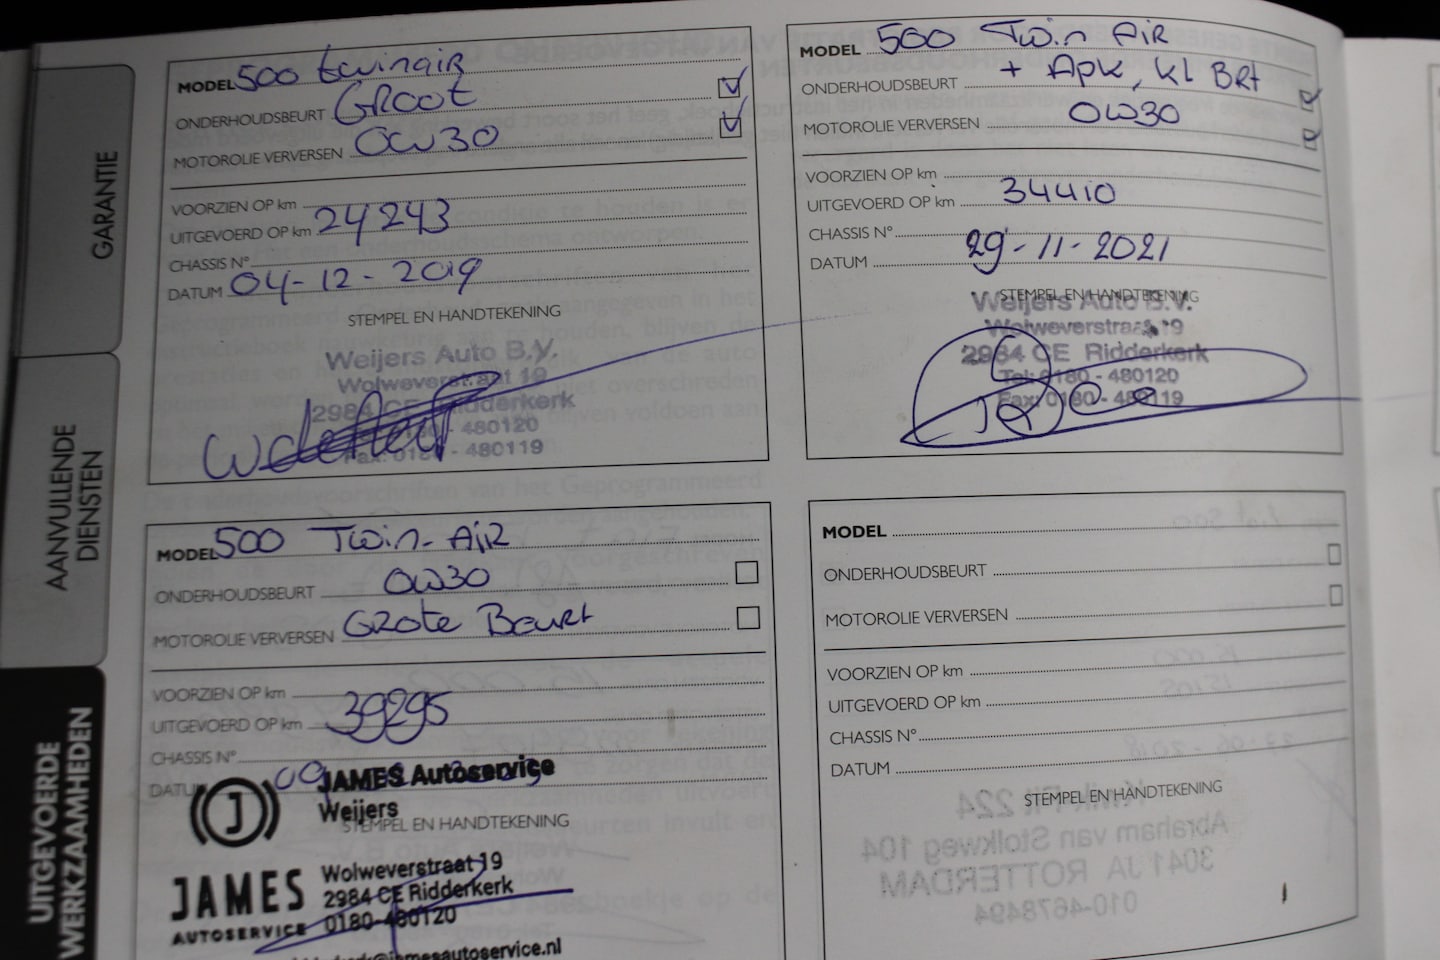 GARANTIE
AANVULLENDE
DIENSTEN
UITGEVOERDE
WERKZAAMHEDEN
MODEL 500 twinair
ONDERHOUDSBEURT GROOT
MOTOROLIE VERVERSEN OW30
VOORZIEN OP km
UITGEVOERD OP km 24243
CHASSIS N°
DATUM 04-12-2019
STEMPEL EN HANDTEKENING
Weijers Auto B.V.
Wolweverstraat 19
2984 CE Ridderkerk
0180 - 480120
Fax: 0180 - 480119
MODEL 500 Twin AiR
ONDERHOUDSBEURT + Apk, Kl BRt
MOTOROLIE VERVERSEN OW30
VOORZIEN OP km
UITGEVOERD OP km 34410
CHASSIS N°
DATUM 29-11-2021
STEMPEL EN HANDTEKENING
Weijers Auto B.V.
Wolweverstraat 19
2984 CE Ridderkerk
Tel: 0180 - 480120
Fax: 0180 - 480119
MODEL 500 Twin-AiR
ONDERHOUDSBEURT OW30
MOTOROLIE VERVERSEN GROte BeuRt
VOORZIEN OP km
UITGEVOERD OP km 39295
CHASSIS N°
DATUM
JAMES Autoservice
Weijers
STEMPEL EN HANDTEKENING
JAMES
AUTOSERVICE
Wolweverstraat 19
2984 CE Ridderkerk
0180-480120
MODEL
ONDERHOUDSBEURT
MOTOROLIE VERVERSEN
VOORZIEN OP km
UITGEVOERD OP km
CHASSIS N°
DATUM
STEMPEL EN HANDTEKENING